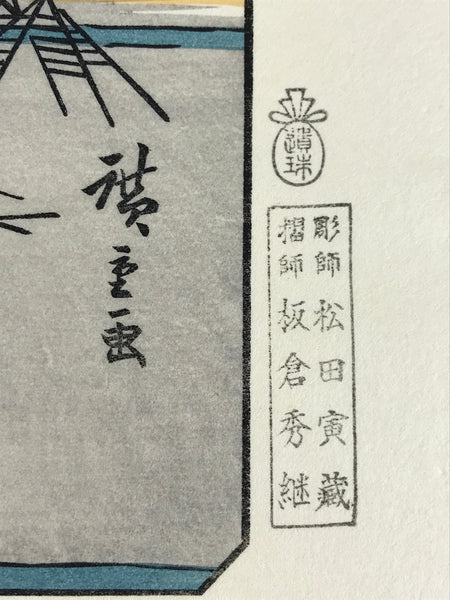 廣重画
遺珠
彫師 松田寅藏
摺師 板倉秀継